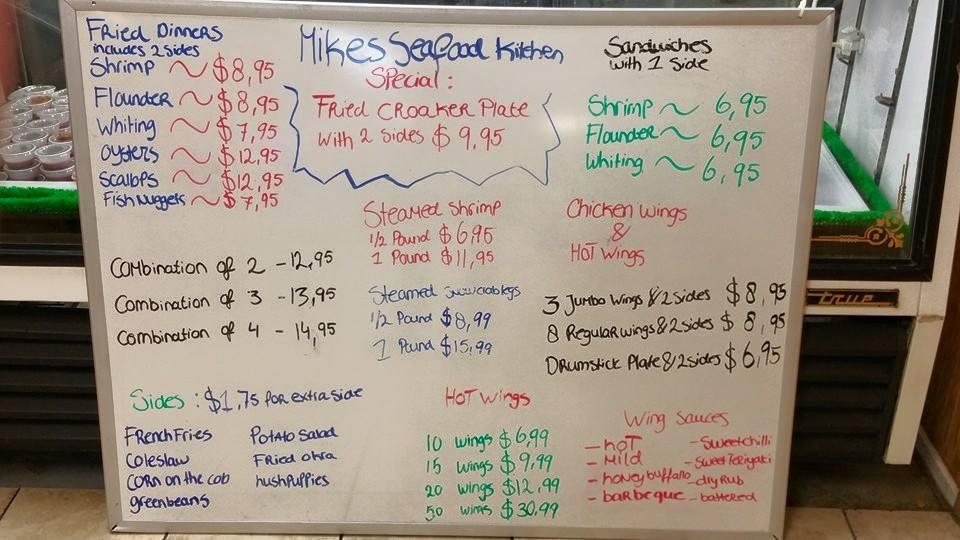 Mikes Seafood Kitchen
Special:
Fried Croaker Plate
with 2 Sides $9,95
Fried Dinners
includes 2 sides
Shrimp ~ $8,95
Flounder ~ $8,95
Whiting ~ $7,95
Oysters ~ $12,95
Scallops ~ $12,95
Fish Nuggets ~ $7,95
Combination of 2 - 12,95
Combination of 3 - 13,95
Combination of 4 - 14,95
Steamed Shrimp
1/2 Pound $6,95
1 Pound $11,95
Steamed Snowcrablegs
1/2 Pound $8,99
1 Pound $15,99
Sandwiches
with 1 Side
Shrimp ~ 6,95
Flounder ~ 6,95
Whiting ~ 6,95
Chicken Wings
&
Hot Wings
3 Jumbo Wings & 2 Sides $8,95
8 Regular wings & 2 sides $8,95
Drumstick Plate & 2 sides $6,95
Sides: $1,75 for extra side
French Fries
Coleslaw
Corn on the cob
greenbeans
Potato Salad
Fried Okra
hushpuppies
Hot Wings
10 wings $6,99
15 wings $9,99
20 wings $12,99
50 wings $30,99
Wing Sauces
- hot
- Mild
- honeybuffalo
- barbeque
- Sweetchilli
- Sweet Teriyaki
- dry Rub
- battered
true